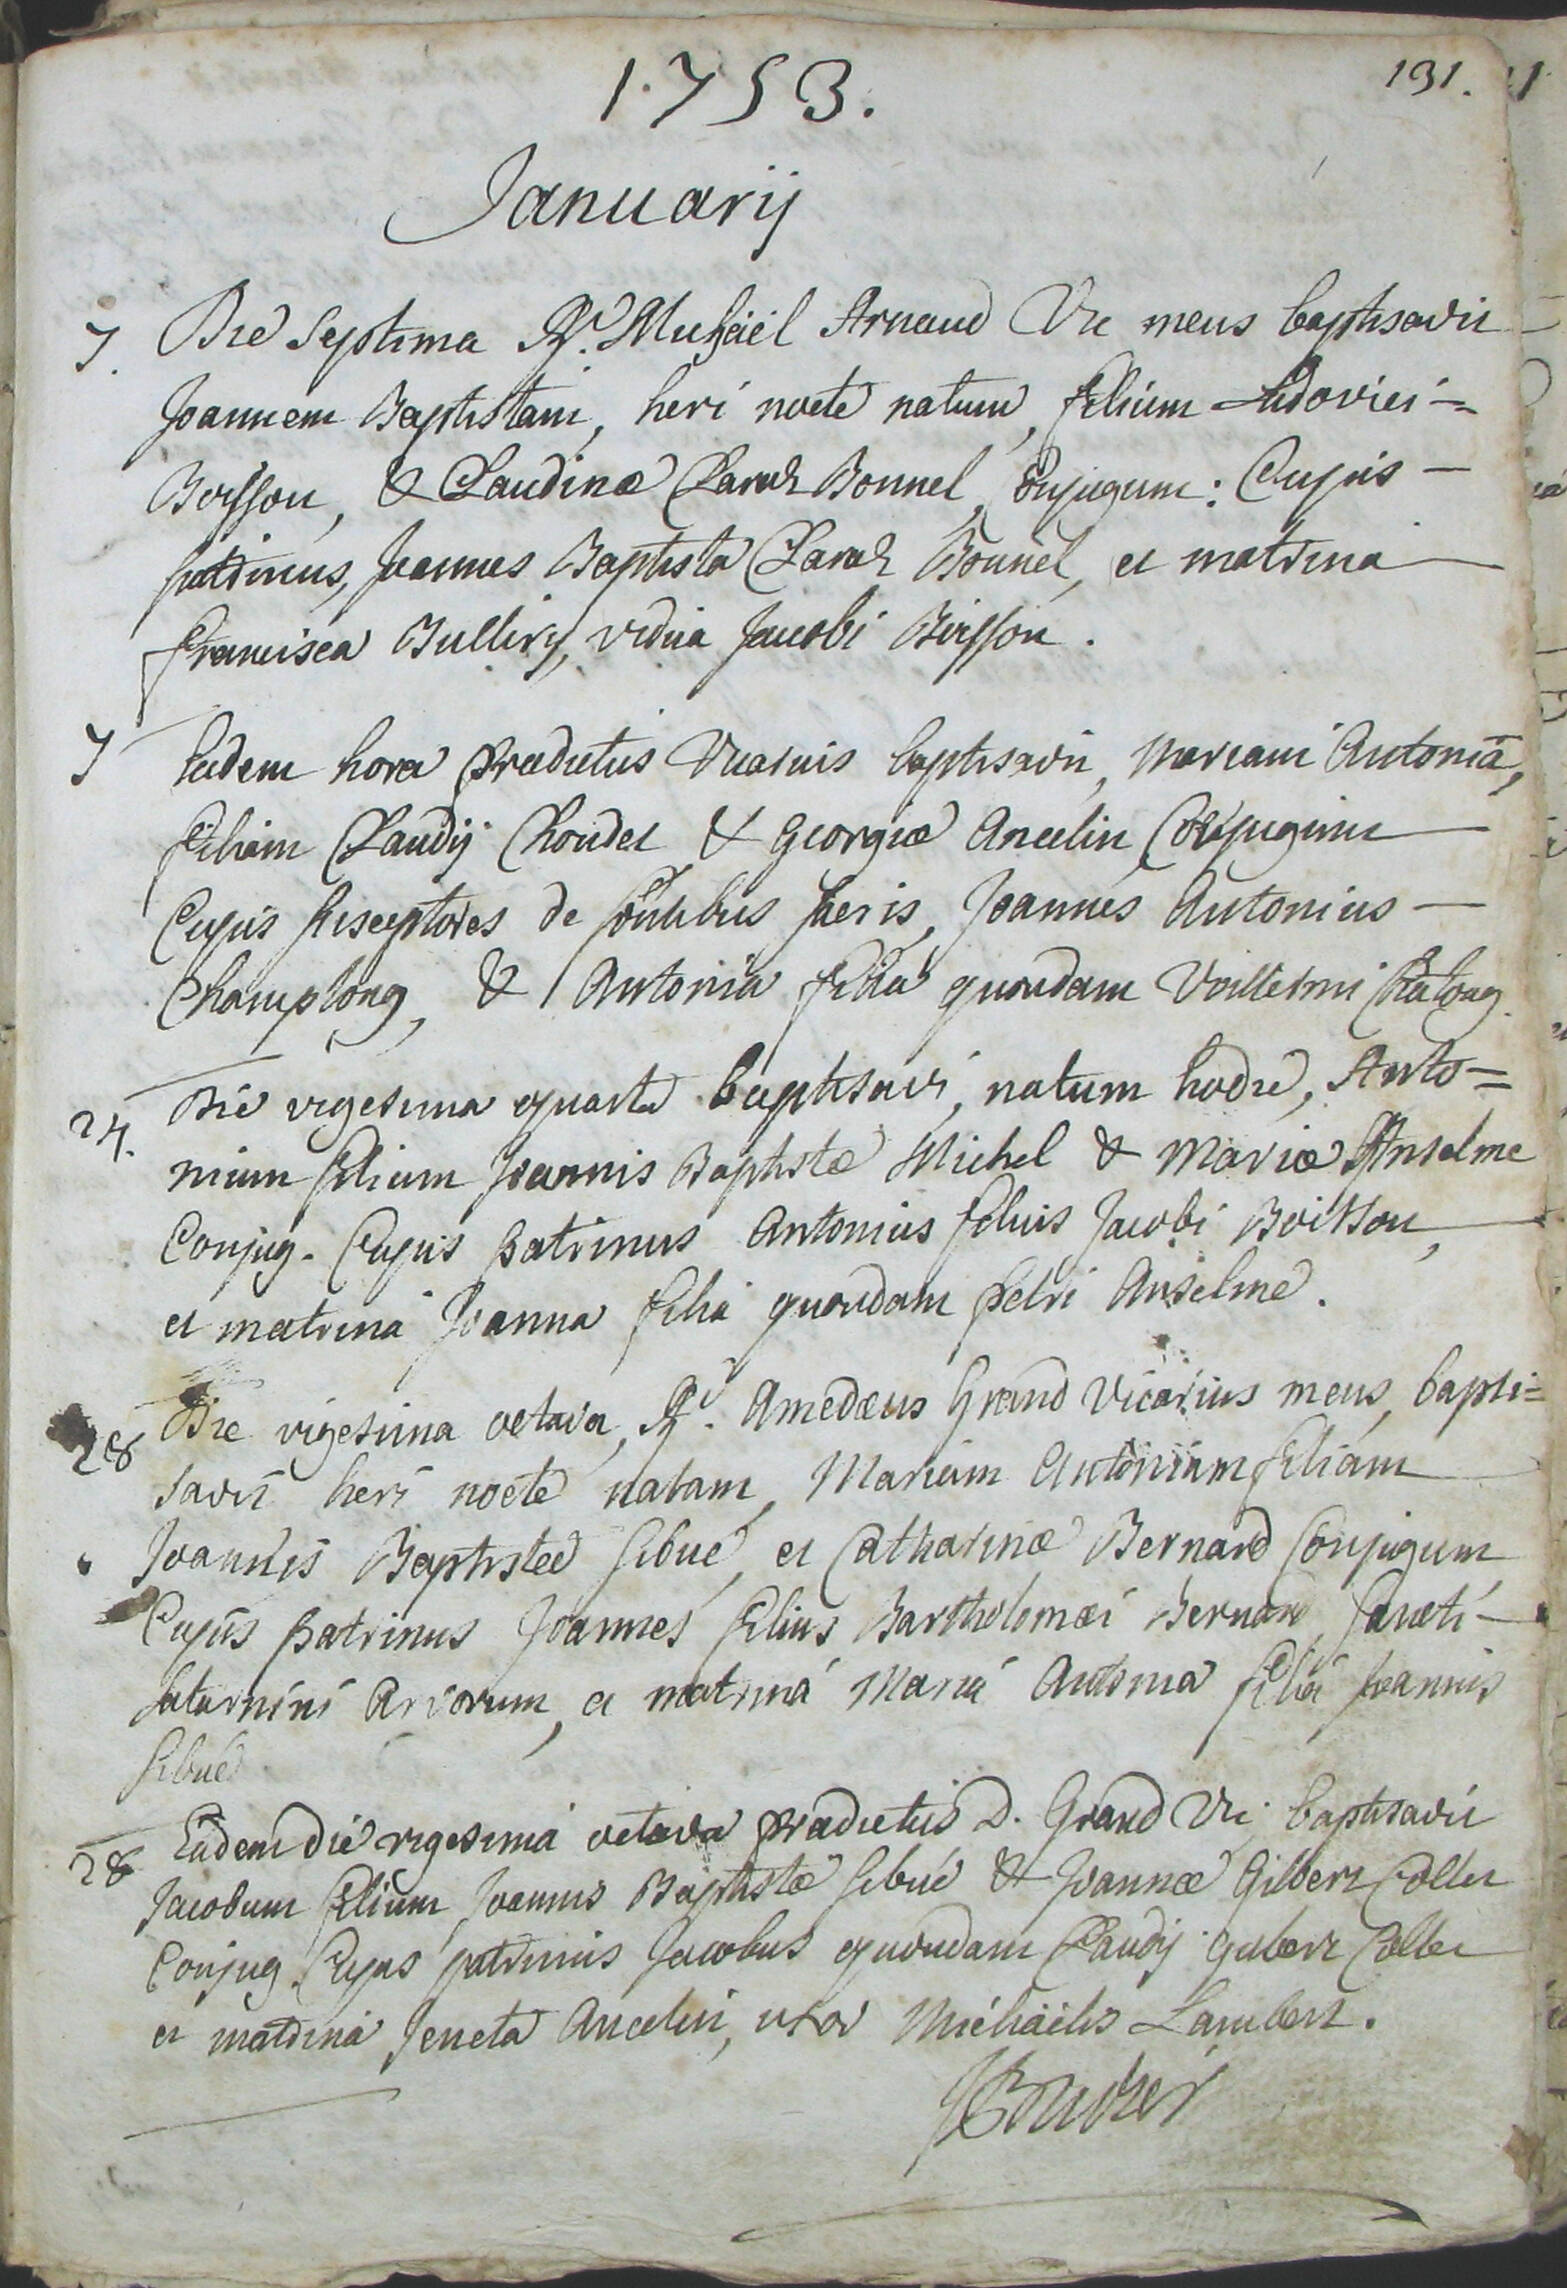 1.753.
131.
Januarij
7. Die Septima Rd. Michaël Arnaud Vic meus baptisavit
Joannem Baptistam, heri nocte natum, filium Ludovici =
Boisson, & Claudinæ Claraz Bonnel, Conjugum: Cujus –
patrinus, Joannes Baptista Claraz Bonnel, et matrina
francisca Bulliny, vidua Jacobi Boisson.
7 Eadem hora prædictus Vicarius baptisavit, Mariam Antoniā,
filiam Claudij Choudet & Georgiæ Ancelin, Conjugum
Cujus susceptores de fontibus sacris, Joannes Antonius –
Champlong, & Antonia filia quondam Vuillelmi
24. Die vigesima quarta baptisavi, natum hodie, Anto=
nium filium Joannis Baptistæ Michel & Mariæ Anselme
Conjug. Cujus patrinus Antonius filius Jacobi Boisson,
et matrina Joanna filia quondam petri Anselme.
28 Die vigesima octava, Rd. Amedæus Grand Vicarius meus, bapti=
savit heri nocte natam, Mariam Antoniam filiam
Joannis Baptistæ sibué, et Catharinæ Bernard Conjugum
Cujus patrinus Joannes filius Bartholomæi Bernard, sancti –
saturnini Arvorum, et matrina Maria Antonia filia Joannis
sibué
28 Eadem die vigesima octava prædictus D. Grand Vic. baptisavit
Jacobum filium Joannis Baptistæ sibué & Joannæ Gilbert Collet
Conjug. Cujus patrinus Jacobus quondam Claudij Gilbert Collet
et matrina Jeneta Ancelin, uxor Michaëlis Lambert.